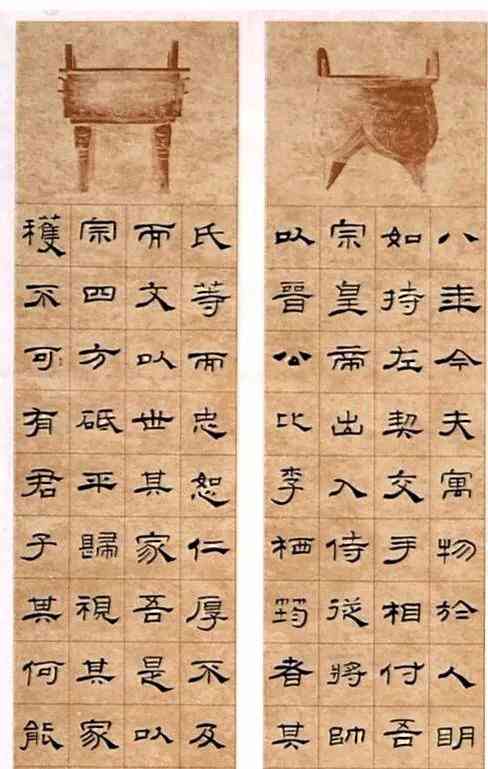 八年今夫寓物於人明
如持左契交手相付吾
宗皇帝出入侍從將帥
以晉公比李栖筠者其
氏等而忠恕仁厚不及
而文以世其家吾是以
宗四方砥平歸視其家
穫不可有君子其何能